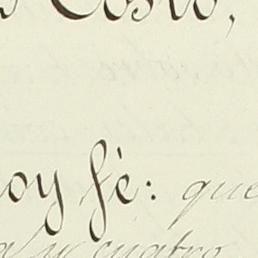 Costo,
oy fè: que
y cuatro